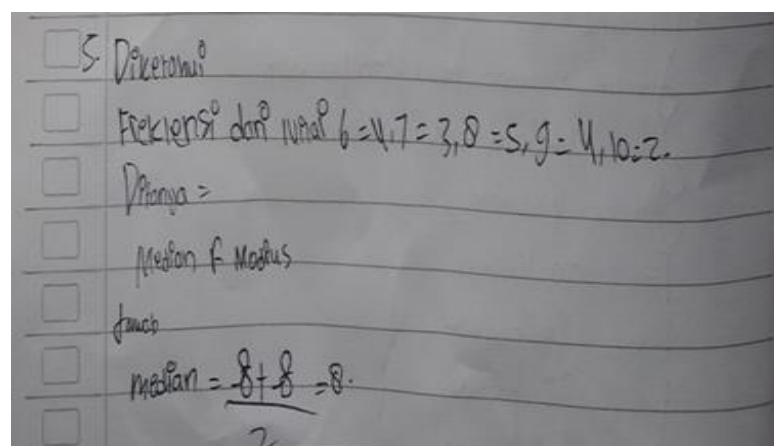 5. Diketahui
Frekuensi dari nilai 6 = 4, 7 = 3, 8 = 5, 9 = 4, 10 = 2.
Ditanya =
Median & Modus
Jawab
median = 8 + 8 = 8.
2